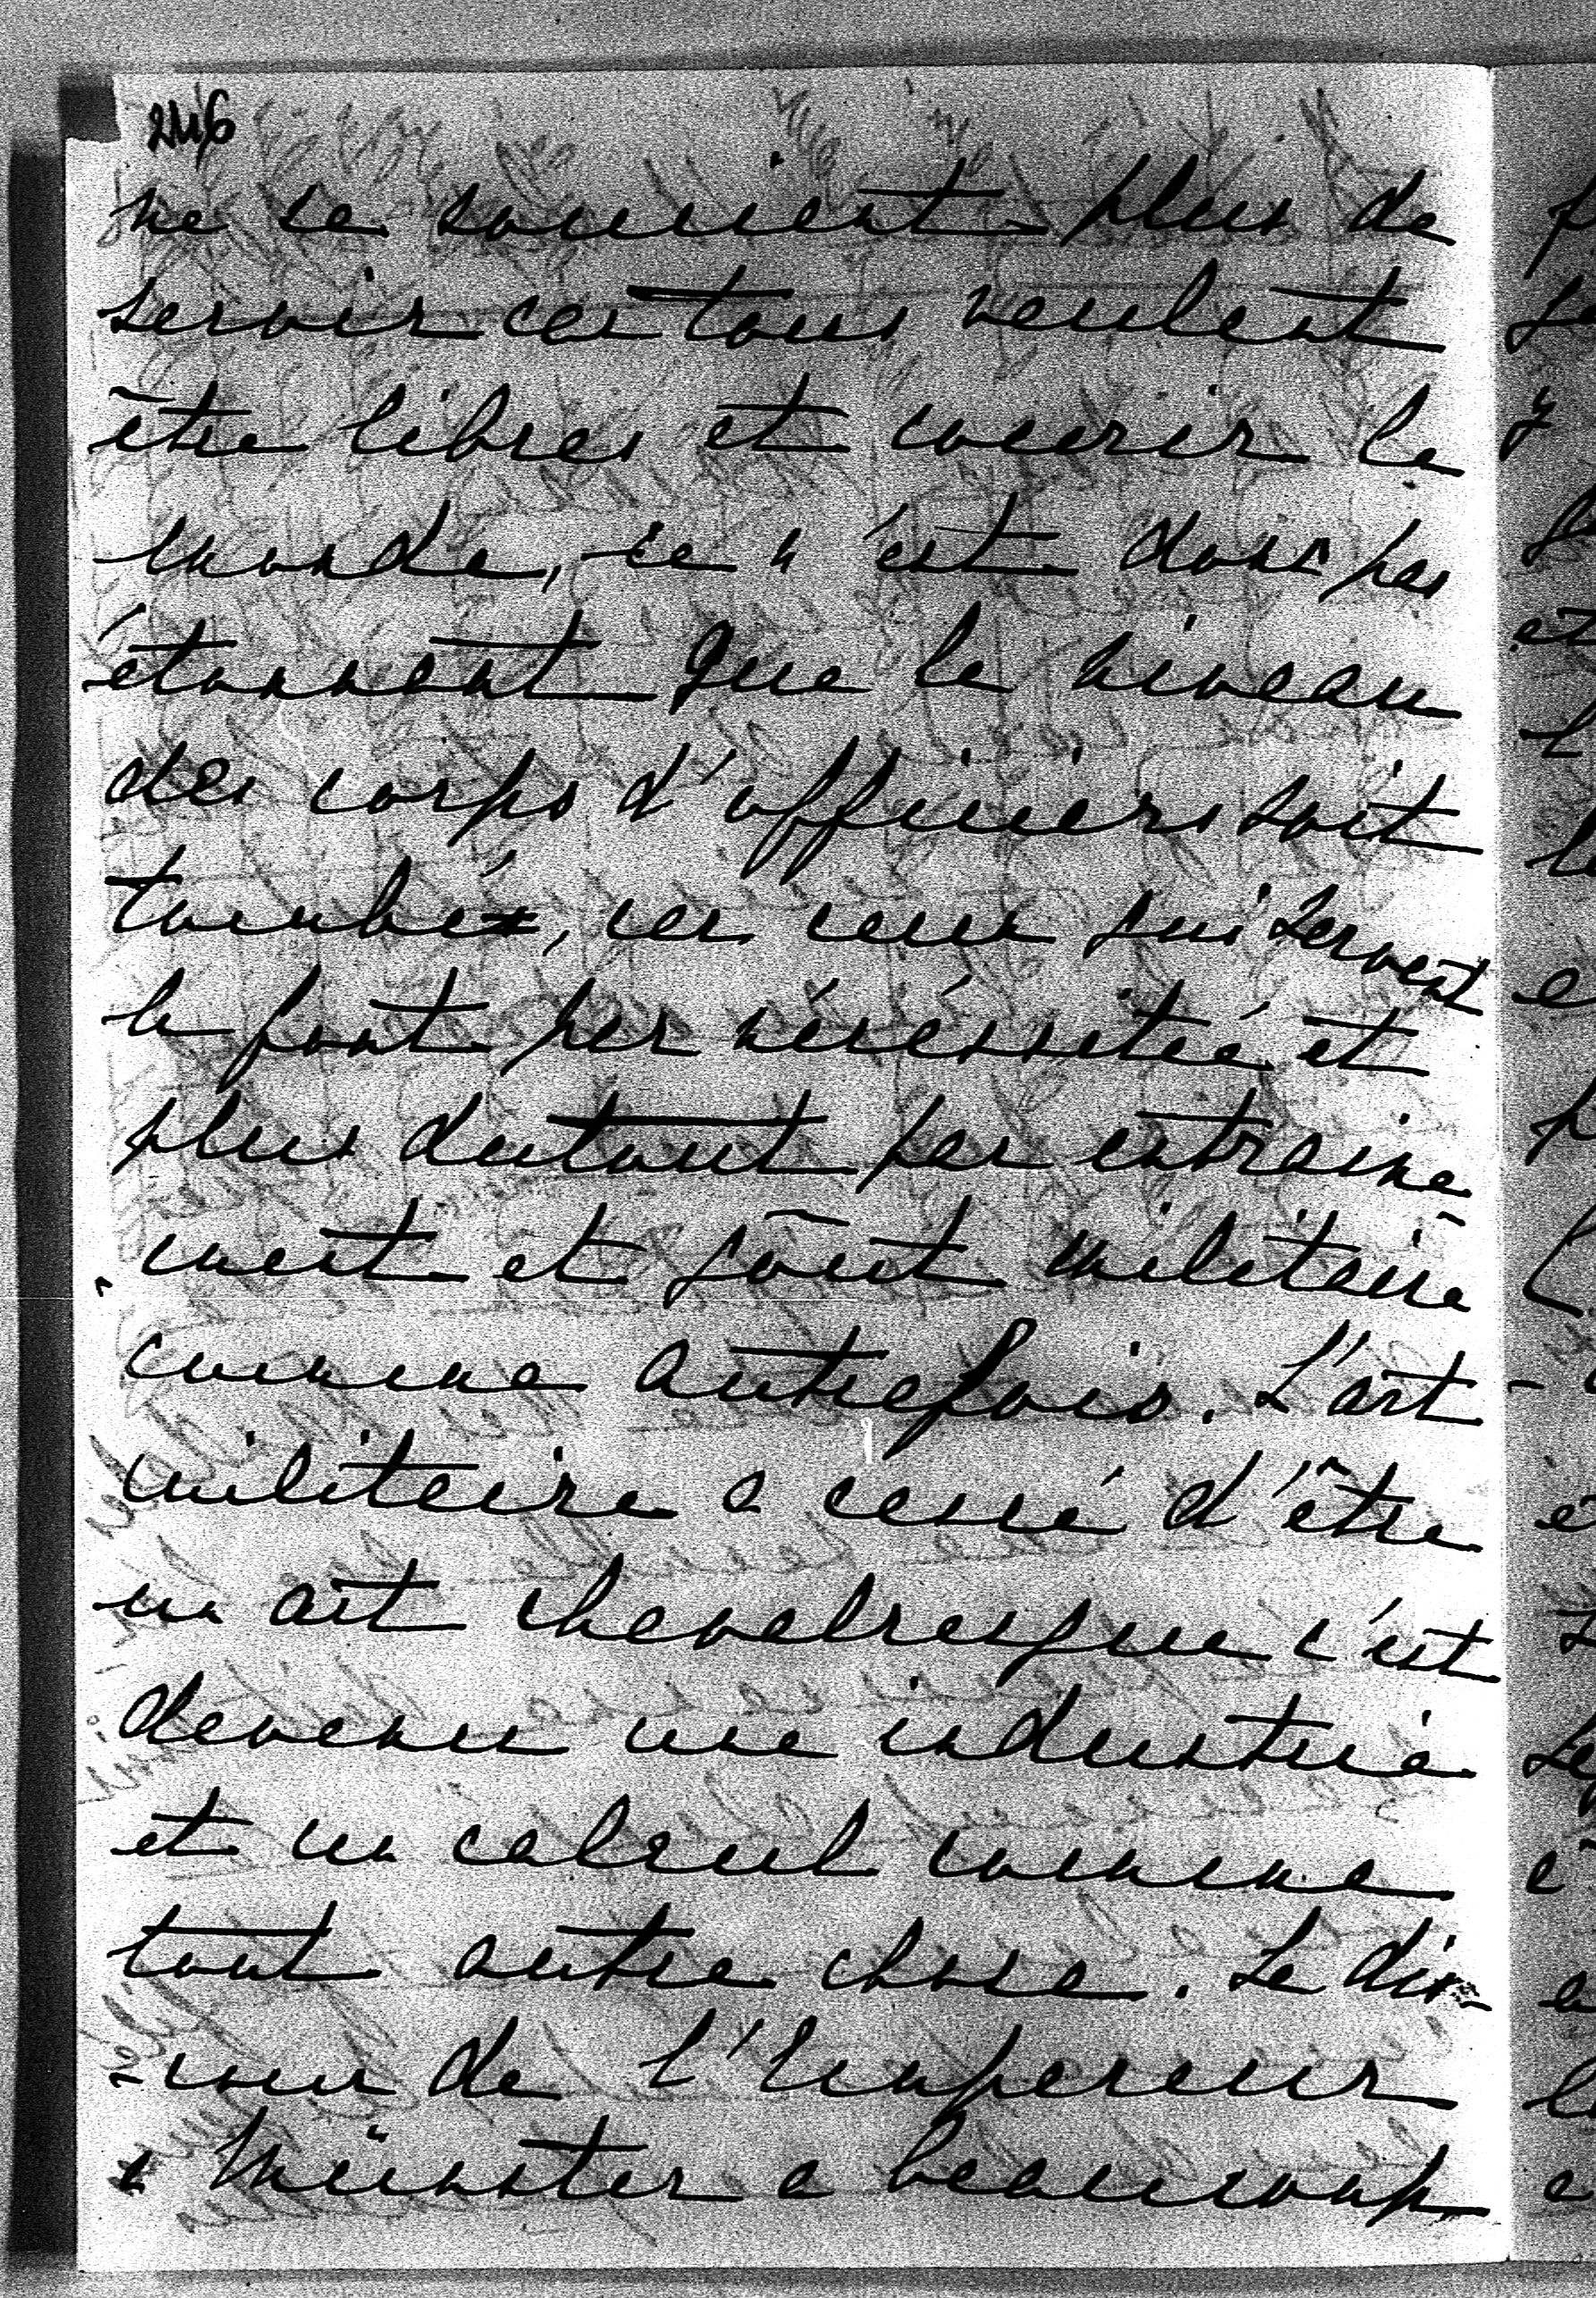 246
ne se soucient plus de
servir car tous veulent
être libres et courir le
monde, ce n'est donc pas
étonnant que le niveau
des corps d'officiers soit
tombé, car ceux qui servent
le font par nécéssitée et
plus dutout par entraine
ment et goût militaire
comme autrefois. L'art
militaire a cessé d'être
un art chevalresque c'est
devenu une industrie
et un calcul comme
tout autre chose. Le dis-
=cour de l'Empereur
a Münster a beaucoup